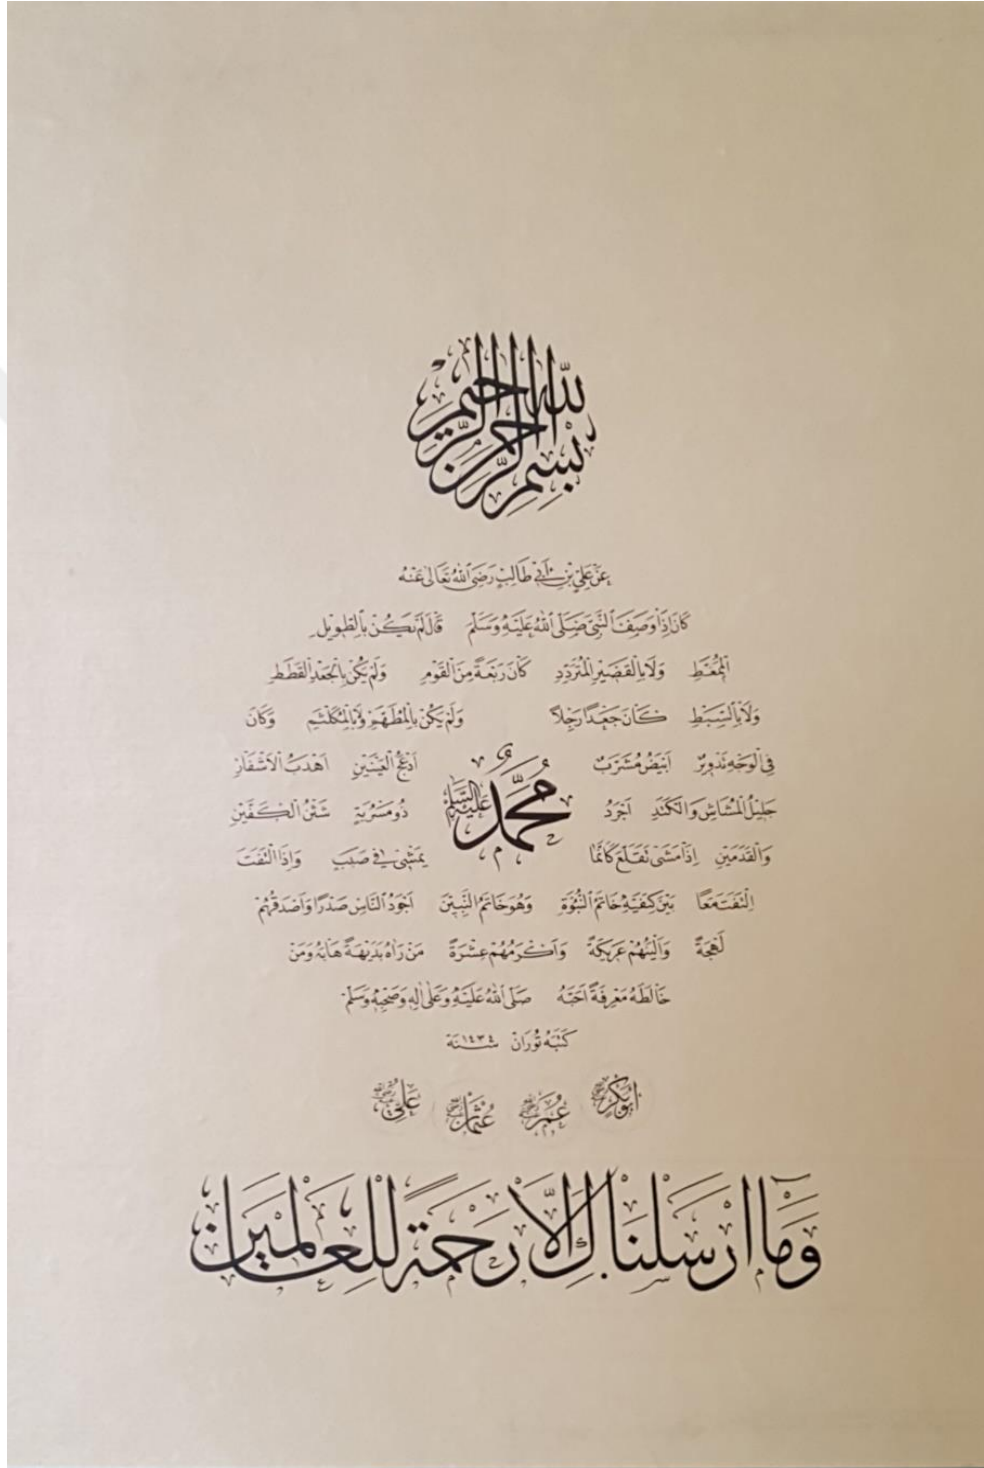 بِسْمِ اللّٰهِ الرَّحْمٰنِ الرَّحِيمِ
عَنْ عَلِيِّ بْنِ أَبِي طَالِبٍ رَضِيَ اللّٰهُ تَعَالٰى عَنْهُ
كَانَ اِذَا وَصَفَ النَّبِيَّ صَلَّى اللّٰهُ عَلَيْهِ وَسَلَّمَ قَالَ لَمْ يَكُنْ بِالطَّوِيلِ
الْمُمَّغِطِ وَلَا بِالْقَصِيرِ الْمُتَرَدِّدِ كَانَ رَبْعَةً مِنَ الْقَوْمِ وَلَمْ يَكُنْ بِالْجَعْدِ الْقَطَطِ
وَلَا بِالسَّبِطِ كَانَ جَعْدًا رَجِلًا وَلَمْ يَكُنْ بِالْمُطَهَّمِ وَلَا بِالْمُكَلْثَمِ وَكَانَ
فِي الْوَجْهِ تَدْوِيرٌ اَبْيَضُ مُشْرَبٌ اَدْعَجُ الْعَيْنَيْنِ اَهْدَبُ الْاَشْفَارِ
جَلِيلُ الْمُشَاشِ وَالْكَتَدِ اَجْرَدُ ذُو مَسْرُبَةٍ شَثْنُ الْكَفَّيْنِ
مُحَمَّدٌ عَلَيْهِ السَّلَامُ
وَالْقَدَمَيْنِ اِذَا مَشٰى تَقَلَّعَ كَاَنَّمَا يَمْشِي فِي صَبَبٍ وَاِذَا الْتَفَتَ
اِلْتَفَتَ مَعًا بَيْنَ كَتِفَيْهِ خَاتَمُ النُّبُوَّةِ وَهُوَ خَاتَمُ النَّبِيِّينَ اَجْوَدُ النَّاسِ صَدْرًا وَاَصْدَقُهُمْ
لَهْجَةً وَاَلْيَنُهُمْ عَرِيكَةً وَاَكْرَمُهُمْ عِشْرَةً مَنْ رَاٰهُ بَدِيهَةً هَابَهُ وَمَنْ
خَالَطَهُ مَعْرِفَةً اَحَبَّهُ صَلَّى اللّٰهُ عَلَيْهِ وَعَلٰى اٰلِهِ وَصَحْبِهِ وَسَلَّمَ
كَتَبَهُ تُورَانْ سَنَة ١٤٣٤
اَبُو بَكْرٍ عُمَرُ عُثْمَانُ عَلِيٌّ
وَمَا اَرْسَلْنَاكَ اِلَّا رَحْمَةً لِلْعَالَمِينَ